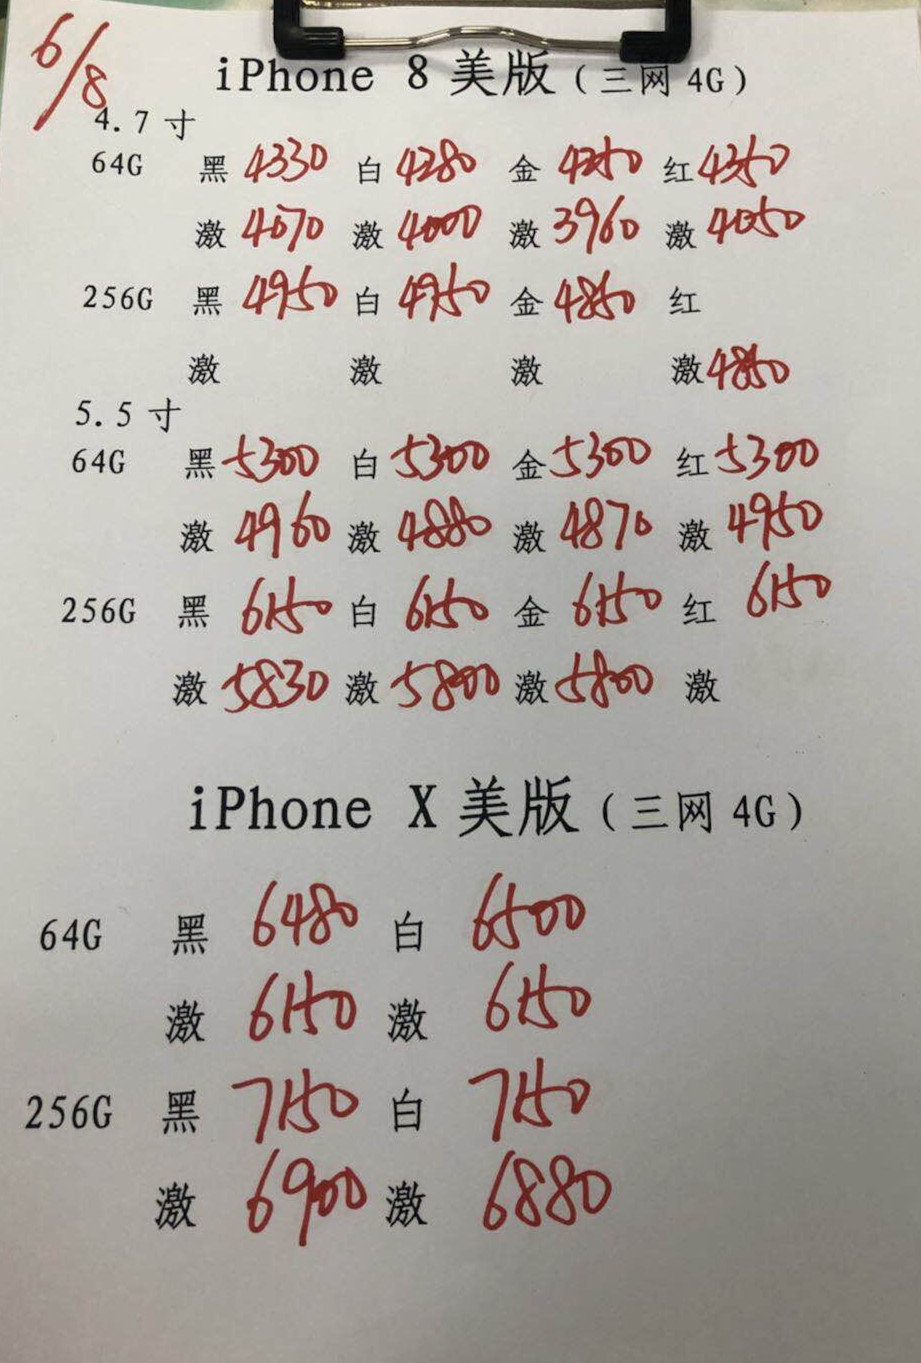 6/8
iPhone 8 美版(三网 4G)
4.7 寸
64G 黑 4330 白 4280 金 4250 红 4350
激 4070 激 4000 激 3960 激 4050
256G 黑 4950 白 4950 金 4850 红
激 激 激 激 4850
5.5 寸
64G 黑 5300 白 5300 金 5300 红 5300
激 4960 激 4880 激 4870 激 4950
256G 黑 6150 白 6150 金 6150 红 6150
激 5830 激 5800 激 5800 激
iPhone X 美版(三网 4G)
64G 黑 6480 白 6500
激 6150 激 6150
256G 黑 7150 白 7150
激 6900 激 6880